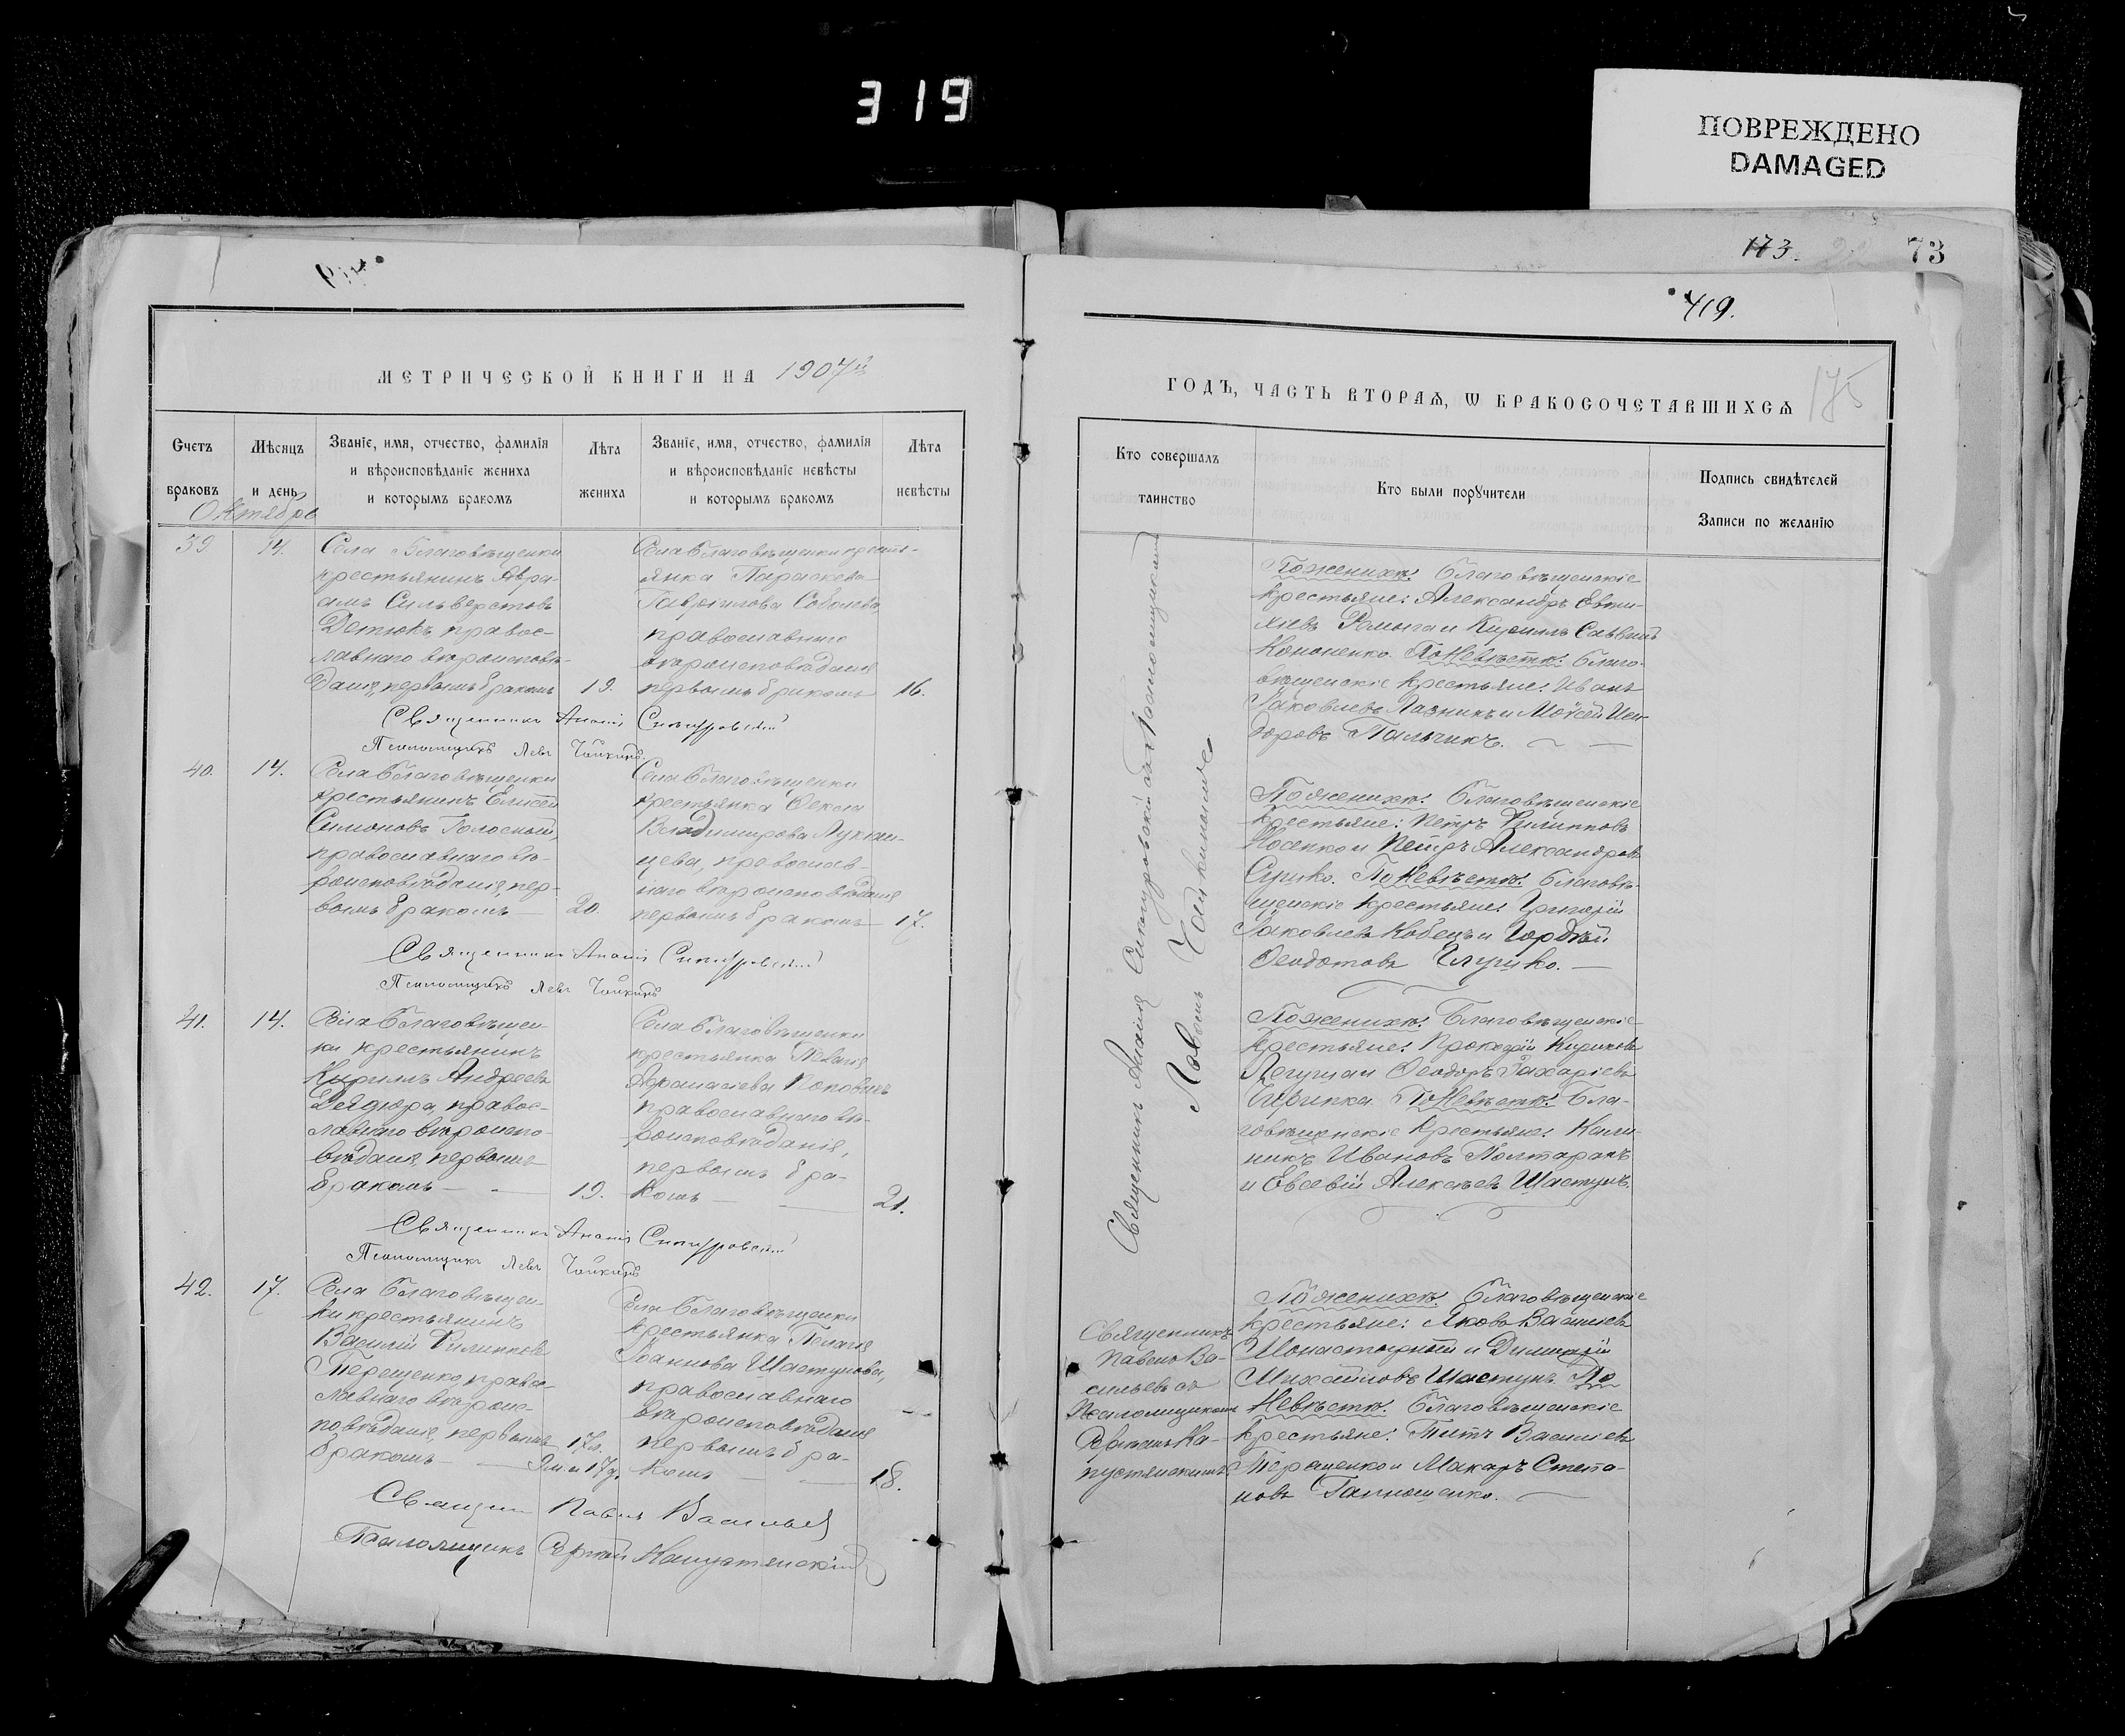 319
ПОВРЕЖДЕНО
DAMAGED
173.
73
419.
175
МЕТРИЧЕСКОЙ КНИГИ НА 1907й
Счетъ браковъ
Мѣсяцъ и день
Званіе, имя, отчество, фамилія
и вѣроисповѣданіе жениха
и которымъ бракомъ
Лѣта жениха
Званіе, имя, отчество, фамилія
и вѣроисповѣданіе невѣсты
и которымъ бракомъ
Лѣта невѣсты
Октябрь
39
14.
Села Благовѣщенки
крестьянинъ Авра-
амъ Сильверстовъ
Детюкъ, правос-
лавнаго вѣроисповѣ-
данія, первымъ бракомъ
19.
Села Благовѣщенки кресть-
янка Параскева
Гавріилова Соболева
православнаго
вѣроисповѣданія
первымъ бракомъ
16.
Священникъ Ананій
Псаломщикъ Левъ Чайкинъ
40.
14.
Села Благовѣщенки
крестьянинъ Елисей
Симоновъ Голосной,
православнаго вѣ-
роисповѣданія, пер-
вымъ бракомъ
20.
Села Благовѣщенки
крестьянка Ѳекла
Владимирова Лукьян-
цева, православ-
наго вѣроисповѣданія
первымъ бракомъ
17.
Священникъ Ананій
Псаломщикъ Левъ Чайкинъ
41.
14.
Села Благовѣщен-
ки крестьянинъ
Кириллъ Андреевъ
правос-
лавнаго вѣроиспо-
вѣданія, первымъ
бракомъ
19.
Села Благовѣщенки
крестьянка
Аѳанасіева
православнаго вѣ-
роисповѣданія,
первымъ бра-
комъ
21.
Священникъ Ананій
Псаломщикъ Левъ Чайкинъ
42.
17.
Села Благовѣщен-
ки крестьянинъ
Василій Филипповъ
Терещенко, правос-
лавнаго вѣроис-
повѣданія, первымъ
бракомъ
17л.
9м и 17д.
Села Благовѣщенки
крестьянка Пелагія
Іоаннова Шастунова,
православнаго
вѣроисповѣданія
первымъ бра-
комъ
18.
Священ Павелъ Васильевъ
Псаломщикъ Сергѣй Капустянскій
ГОДЪ, ЧАСТЬ ВТОРАЯ, Ѡ БРАКОСОЧЕТАВШИХСЯ
Кто совершалъ
таинство
Кто были поручители
Подпись свидѣтелей
Записи по желанію
Священникъ Ананія съ Псаломщикомъ
Львомъ Чайкинымъ
По женихѣ: Благовѣщенскіе
крестьяне: Александръ Евти-
хіевъ и Кириллъ Саввинъ
Кононенко. По Невѣстѣ: Благо-
вѣщенскіе крестьяне: Иванъ
Яковлевъ Лазникъ и Моѵсей Иси-
доровъ Пальчикъ.
По женихѣ: Благовѣщенскіе
крестьяне: Петръ Филипповъ
Носенко и Петръ Александровъ
По Невѣстѣ: Благовѣ-
щенскіе крестьяне: Григорій
Яковлевъ Кобецъ и Гордѣй
Ѳеодотовъ Глушко.
По женихѣ: Благовѣщенскіе
крестьяне: Прокофій Кириковъ
Ѳеодоръ Захаріевъ
По Невѣстѣ: Бла-
говѣщенскіе крестьяне: Кали-
никъ Ивановъ Полтаракъ
и Евсевій Алексѣевъ Шастунъ.
Священникъ
Павелъ Ва-
сильевъ съ
Псаломщикомъ
Сергѣемъ Ка-
пустянскимъ
По женихѣ: Благовѣщенскіе
крестьяне: Яковъ Васильевъ
Монастырный и Димитрій
Михайловъ Шастунъ. По
Невѣстѣ: Благовѣщенскіе
крестьяне: Титъ Васильевъ
Терещенко и Макаръ Степа-
новъ Гапношенко.